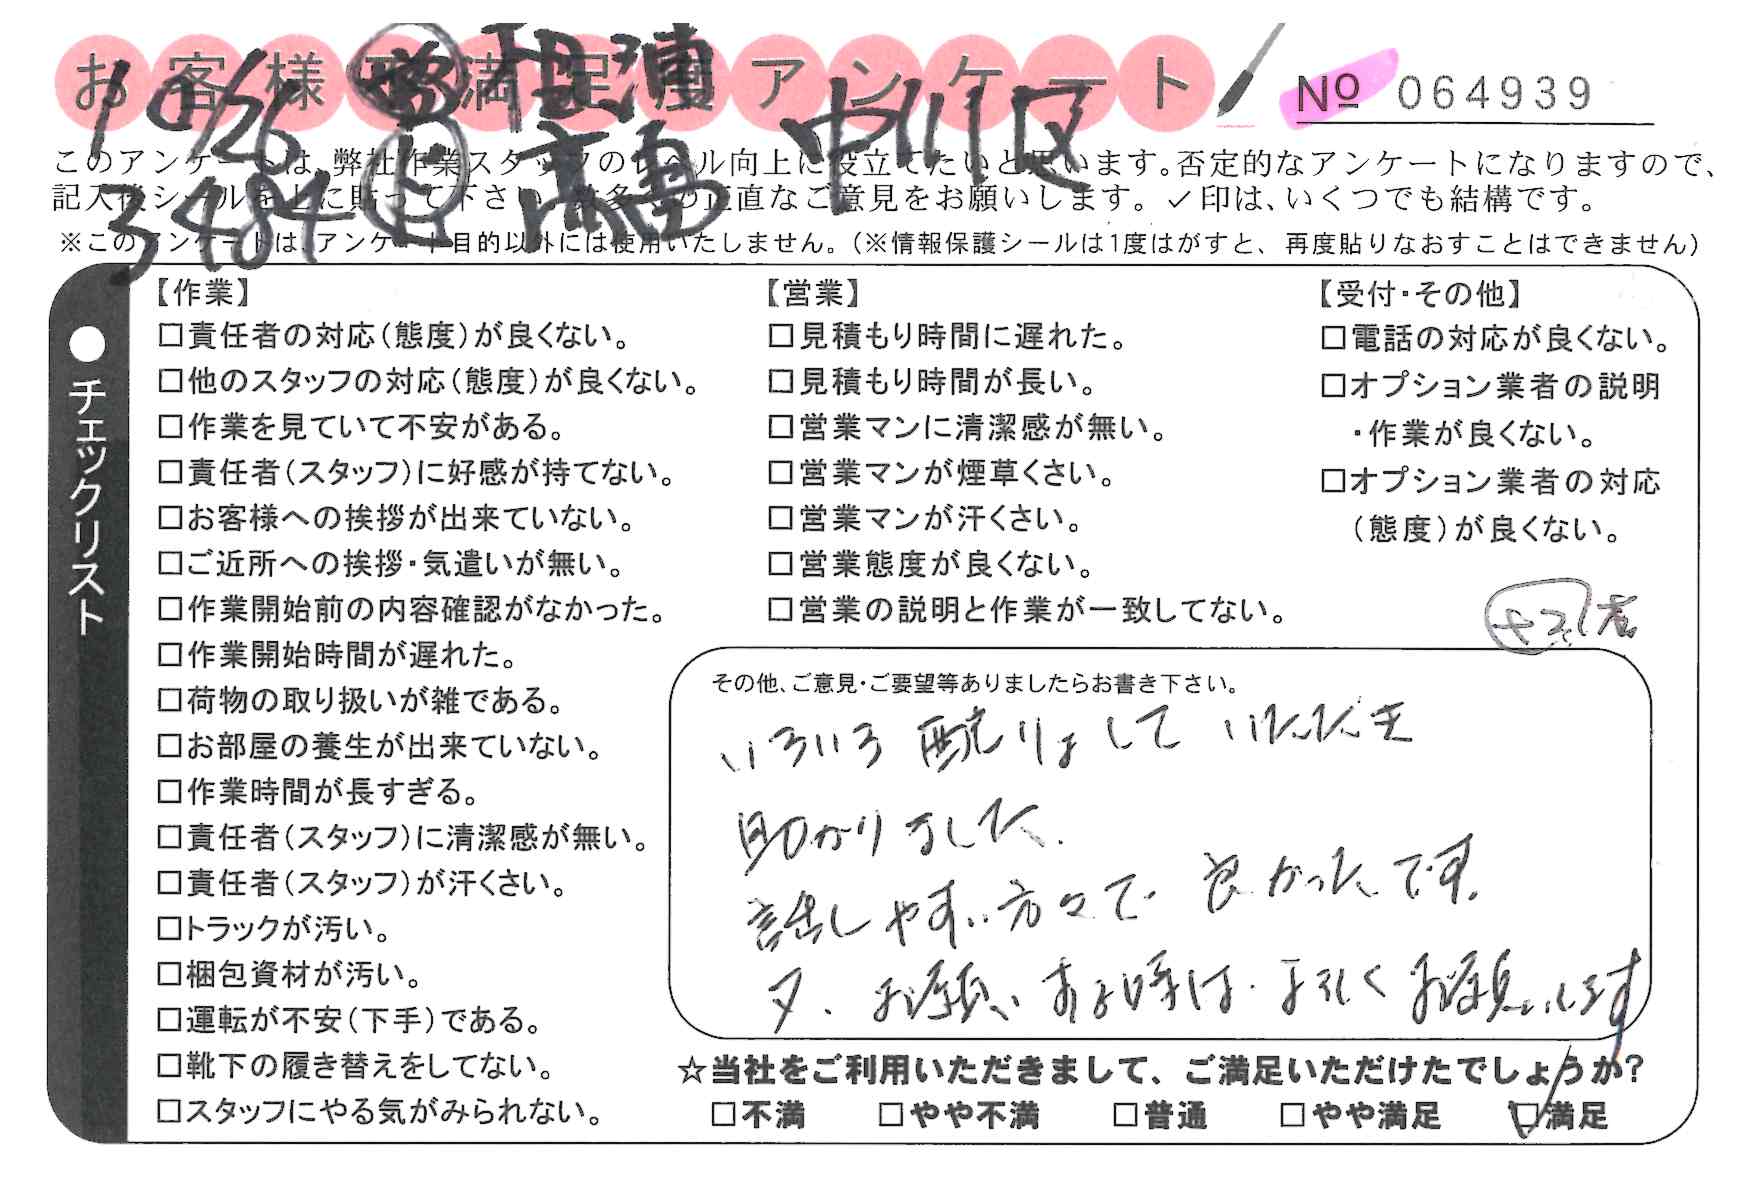 お客様不満足度アンケート
№ 064939
10/26 営 相澤 中川区
3484 上 高島
このアンケートは、弊社作業スタッフのレベル向上に役立てたいと思います。否定的なアンケートになりますので、
記入後シールを上に貼って下さい。数多くの正直なご意見をお願いします。✓印は、いくつでも結構です。
※このアンケートは、アンケート目的以外には使用いたしません。(※情報保護シールは1度はがすと、再度貼りなおすことはできません)
●チェックリスト
【作業】
□責任者の対応(態度)が良くない。
□他のスタッフの対応(態度)が良くない。
□作業を見ていて不安がある。
□責任者(スタッフ)に好感が持てない。
□お客様への挨拶が出来ていない。
□ご近所への挨拶・気遣いが無い。
□作業開始前の内容確認がなかった。
□作業開始時間が遅れた。
□荷物の取り扱いが雑である。
□お部屋の養生が出来ていない。
□作業時間が長すぎる。
□責任者(スタッフ)に清潔感が無い。
□責任者(スタッフ)が汗くさい。
□トラックが汚い。
□梱包資材が汚い。
□運転が不安(下手)である。
□靴下の履き替えをしてない。
□スタッフにやる気がみられない。
【営業】
□見積もり時間に遅れた。
□見積もり時間が長い。
□営業マンに清潔感が無い。
□営業マンが煙草くさい。
□営業マンが汗くさい。
□営業態度が良くない。
□営業の説明と作業が一致してない。
【受付・その他】
□電話の対応が良くない。
□オプション業者の説明
・作業が良くない。
□オプション業者の対応
(態度)が良くない。
その他、ご意見・ご要望等ありましたらお書き下さい。
いろいろ配りょしていただき
助かりました。
話しやすい方々で良かったです。
又、お願いする時は、よろしくお願いします
☆当社をご利用いただきまして、ご満足いただけたでしょうか?
□不満 □やや不満 □普通 □やや満足 ☑満足